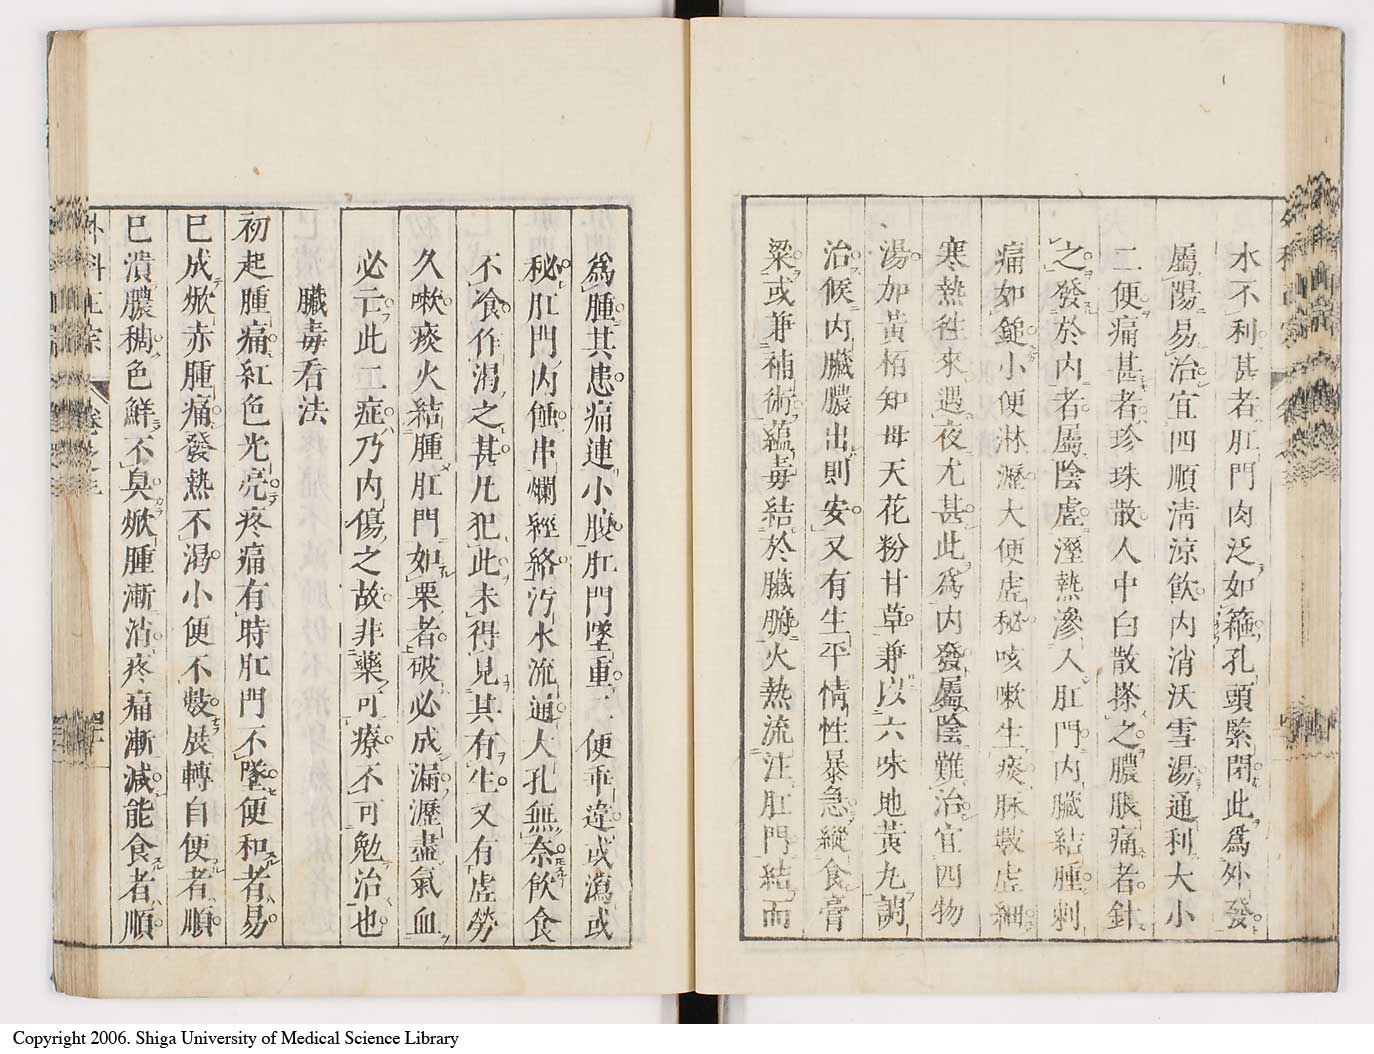 水不利甚者肛門肉泛如箍孔頭緊閉此爲外發
屬陽易治宜四順清涼飲内消沃雪湯通利大小
二便痛甚者珍珠散人中白散搽之膿脹痛者針
之發於内者屬陰虛溼熱滲入肛門内臟結腫刺
痛如錐小便淋瀝大便虛秘咳嗽生痰脉數虛細
寒熱徃來遇夜尤甚此爲内發屬陰難治宜四物
湯加黄栢知母天花粉甘草兼以六味地黄丸調
治候内臟膿出則安又有生平情性暴急縱食膏
梁或兼補術蘊毒結於臟腑火熱流注肛門結而
爲腫其患痛連小腹肛門墜重二便乖違或瀉或
秘肛門内蝕串爛經絡污水流通大孔無奈飲食
不飡作渴之甚凡犯此未得見其有生又有虛勞
久嗽痰火結腫肛門如栗者破必成漏瀝盡氣血
必亡此二症乃内傷之故非藥可療不可勉治也
臟毒看法
初起腫痛紅色光亮疼痛有時肛門不墜便和者易
巳成焮赤腫痛發熱不渴小便不數展轉自便者順
巳潰膿稠色鮮不臭焮腫漸消疼痛漸減能食者順
外科正宗 卷之三
Copyright 2006. Shiga University of Medical Science Library